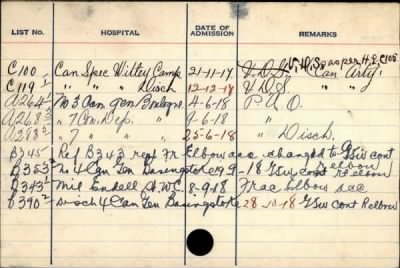 LIST NO. HOSPITAL DATE OF ADMISSION REMARKS
C100 Can Spec Witley Camp 21-11-17 V.D.S. "Can Arty"
C119 " " " Disch 12-12-17 V D S
A264 No 3 Can Gen Boulogne 4-6-18 P.U.O.
A268 " 7 Con Dep. " 9-6-18 "
A283 " 7 " " 25-6-18 " Disch.
B345 Ref B343 rep Fr Elbow acc changed to Gsw cont relbow
B353 No 4 Can Gen Basingstoke 19-9-18 Gsw cont rt elbow
B343 Mil Endell St. W.C. 8-9-18 Frac Elbow acc
B390 Disch 4 Can Gen Basingstoke 28-10-18 Gsw cont Relbow